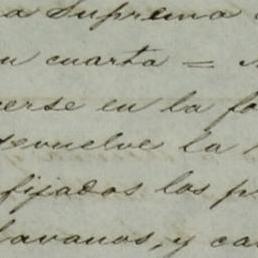 a Suprema
n cuarta =
erse en la fo
devuelve la
fijados los p
lavanos, y ca